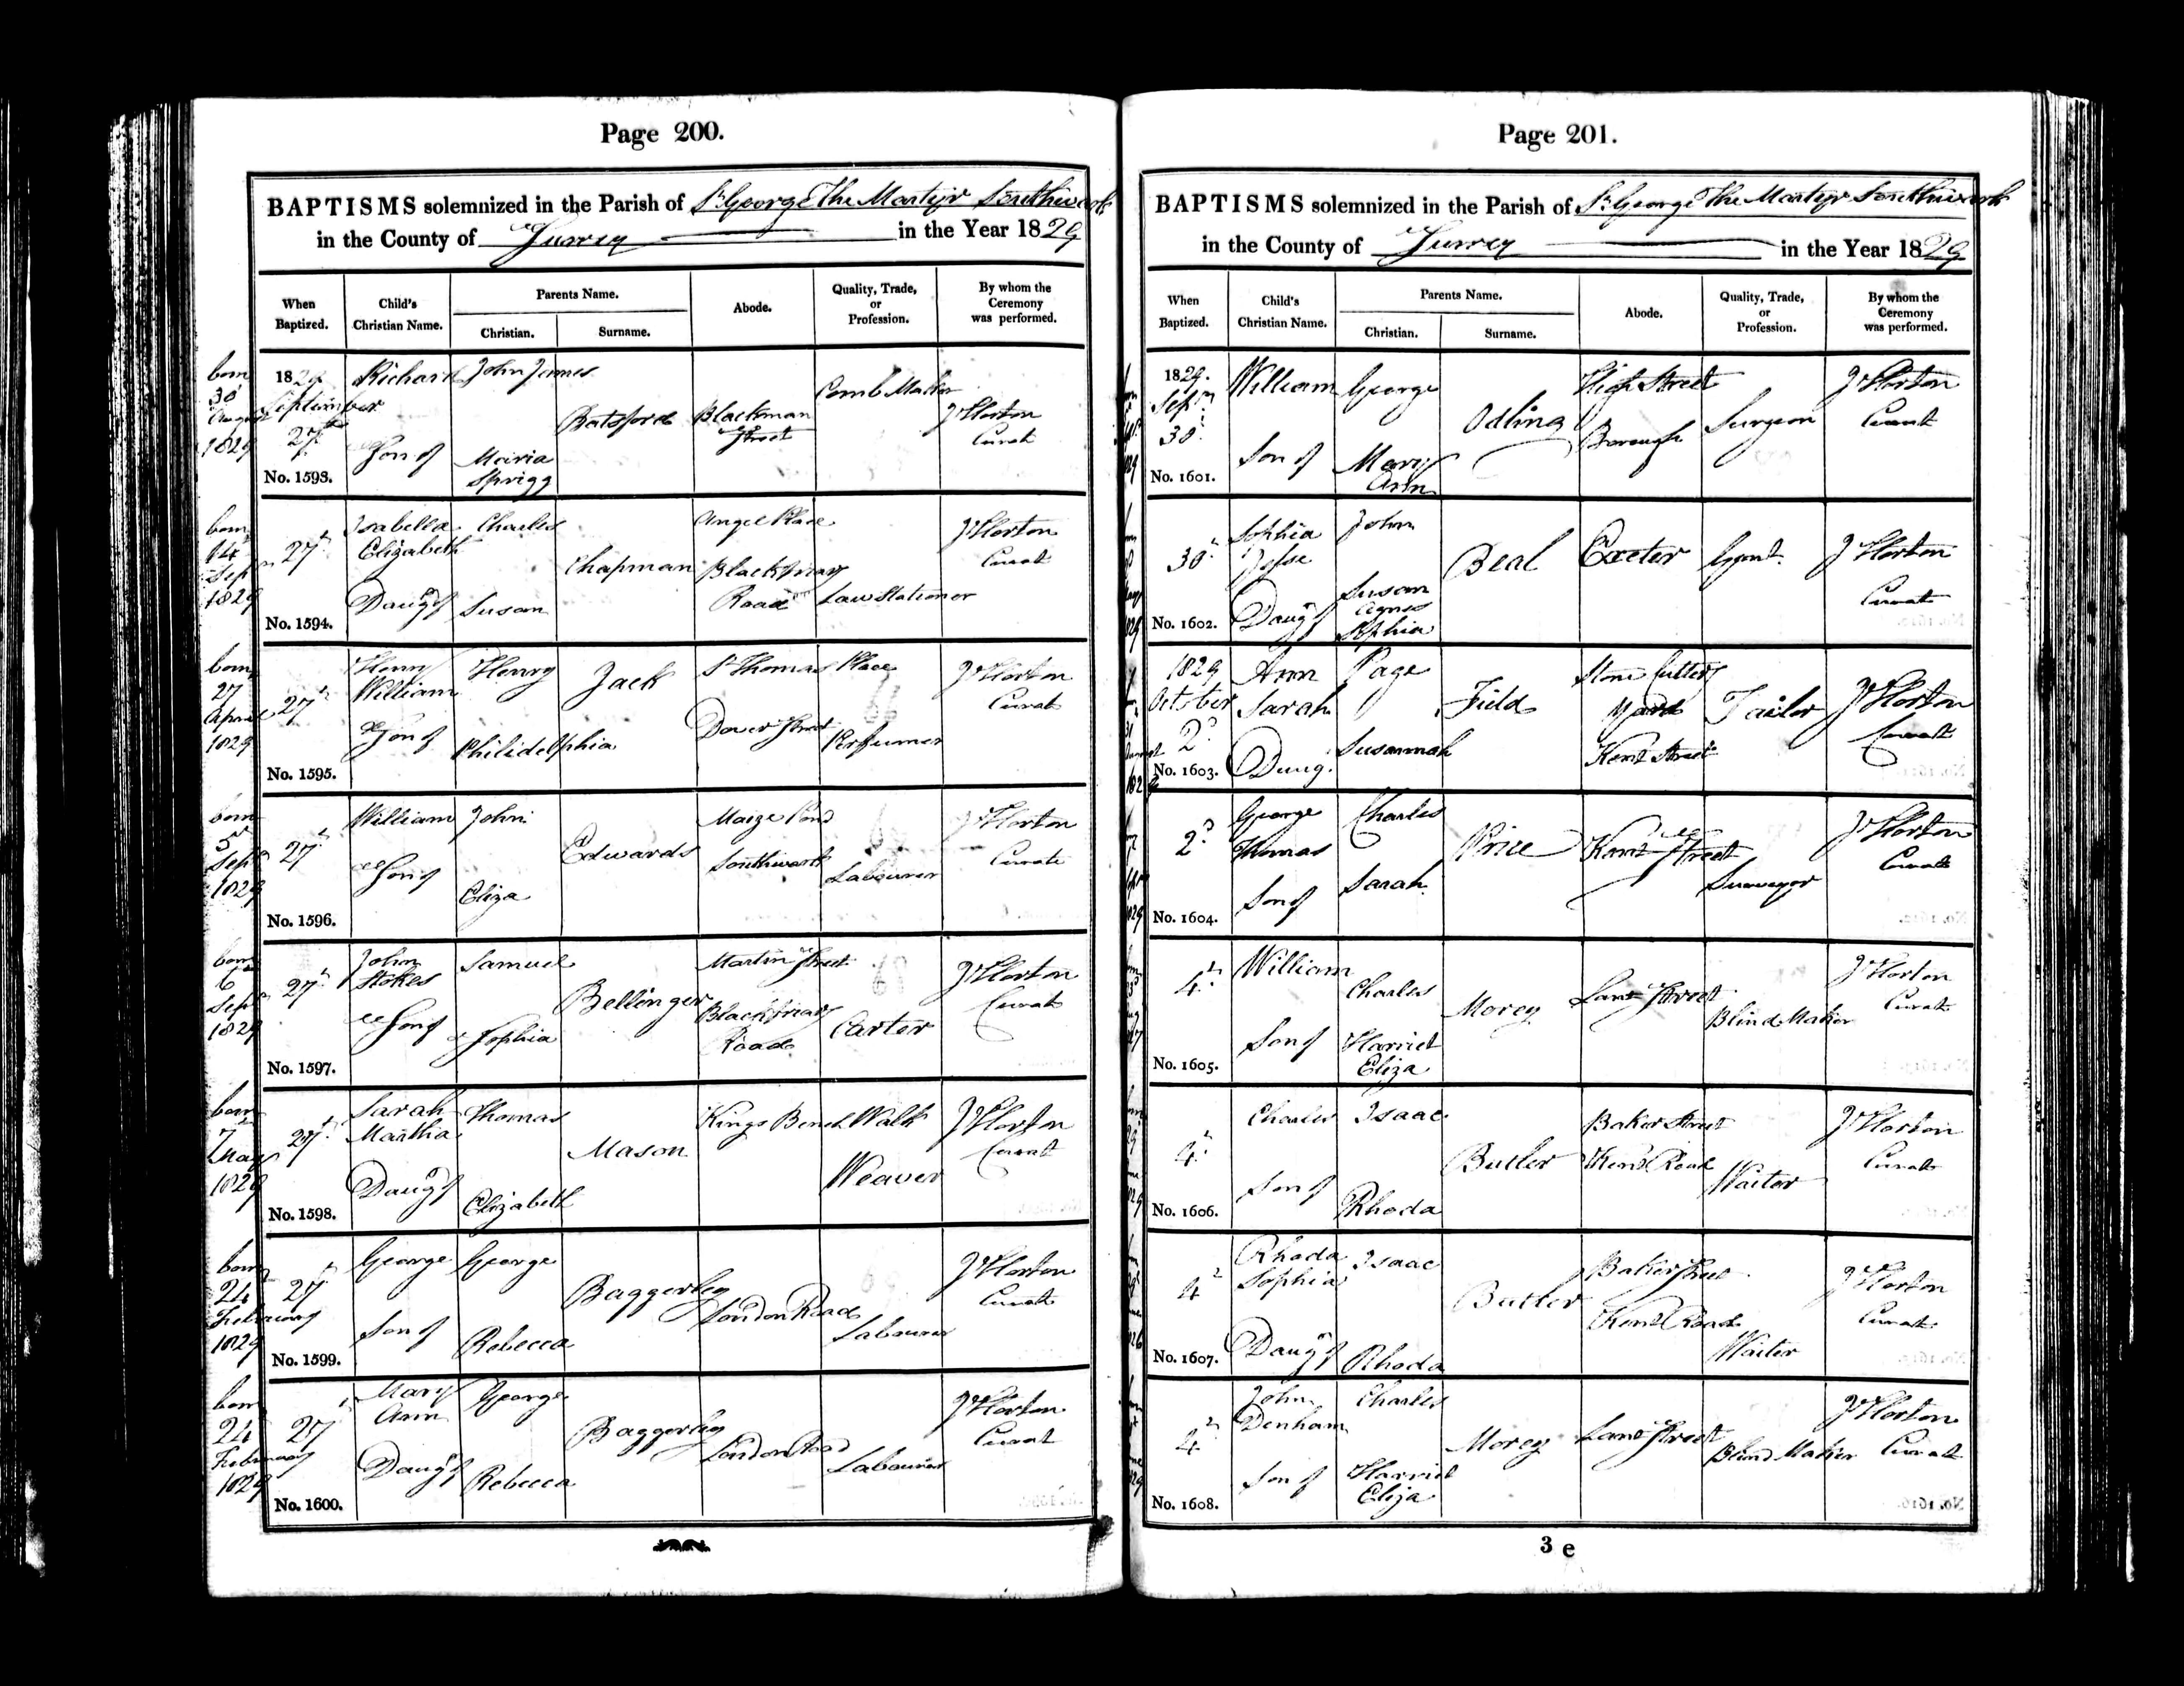 Page 200.
BAPTISMS solemnized in the Parish of St George The Martyr Southwark
in the County of Surrey in the Year 1829
When Baptized.
Child's Christian Name.
Parents Name.
Christian.
Surname.
Abode.
Quality, Trade, or Profession.
By whom the Ceremony was performed.
born 30 August 1829
1829 September 27th
No. 1593.
Richard
Son of
John James
Maria Sprigg
Batsford
Blackman Street
Comb Maker
J Horton Curate
born 14 Sepr 1829
27th
No. 1594.
Isabella Elizabeth
Daugr of
Charles
Susan
Chapman
Angel Place Blackfriars Road
Law Stationer
J Horton Curate
born 27 April 1829
27th
No. 1595.
Henry William
Son of
Henry
Philidelphia
Jack
St Thomas Place Dover Street
Perfumer
J Horton Curate
born 5 Sepr 1829
27th
No. 1596.
William
Son of
John
Eliza
Edwards
Maize Pond Southwark
Labourer
J Horton Curate
born 6 Sepr 1829
27th
No. 1597.
John Stokes
Son of
Samuel
Sophia
Bellinger
Martin Street Blackfriars Road
Carter
J Horton Curate
born 7 May 1829
27th
No. 1598.
Sarah Martha
Daugr of
Thomas
Elizabeth
Mason
Kings Bench Walk
Weaver
J Horton Curate
born 24 February 1829
27th
No. 1599.
George
Son of
George
Rebecca
Baggerley
London Road
Labourer
J Horton Curate
born 24 February 1829
27th
No. 1600.
Mary Ann
Daugr of
George
Rebecca
Baggerley
London Road
Labourer
J Horton Curate
Page 201.
BAPTISMS solemnized in the Parish of St George The Martyr Southwark
in the County of Surrey in the Year 1829
When Baptized.
Child's Christian Name.
Parents Name.
Christian.
Surname.
Abode.
Quality, Trade, or Profession.
By whom the Ceremony was performed.
1829. Sepr 30th
No. 1601.
William
Son of
George
Mary Ann
Odling
High Street Borough
Surgeon
J Horton Curate
30th
No. 1602.
Sophia
Daugr of
John
Susan Agnes Sophia
Beal
Exeter
Gent.
J Horton Curate
1829 October 2d
No. 1603.
Ann Sarah
Daug.
Page
Susannah
Field
Stone Cutters Yard Kent Street
Tailor
J Horton Curate
2d
No. 1604.
George Thomas
Son of
Charles
Sarah
Price
Kent Street
Surveyor
J Horton Curate
4th
No. 1605.
William
Son of
Charles
Harriet Eliza
Morey
Lant Street
Blind Maker
J Horton Curate
4th
No. 1606.
Charles
Son of
Isaac
Rhoda
Butler
Baker Street Kent Road
Waiter
J Horton Curate
4th
No. 1607.
Rhoda Sophia
Daugr of
Isaac
Rhoda
Butler
Baker Street Kent Road
Waiter
J Horton Curate
4th
No. 1608.
John Denham
Son of
Charles
Harriet Eliza
Morey
Lant Street
Blind Maker
J Horton Curate
3 e